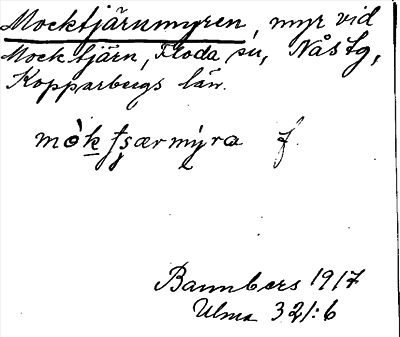 Mocktjärnmyren, myr vid
Mocktjärn, Floda sn, Nås tg,
Kopparbergs län.
mòk tʂærmýra f.
Bannbers 1917
Ulma 321:6